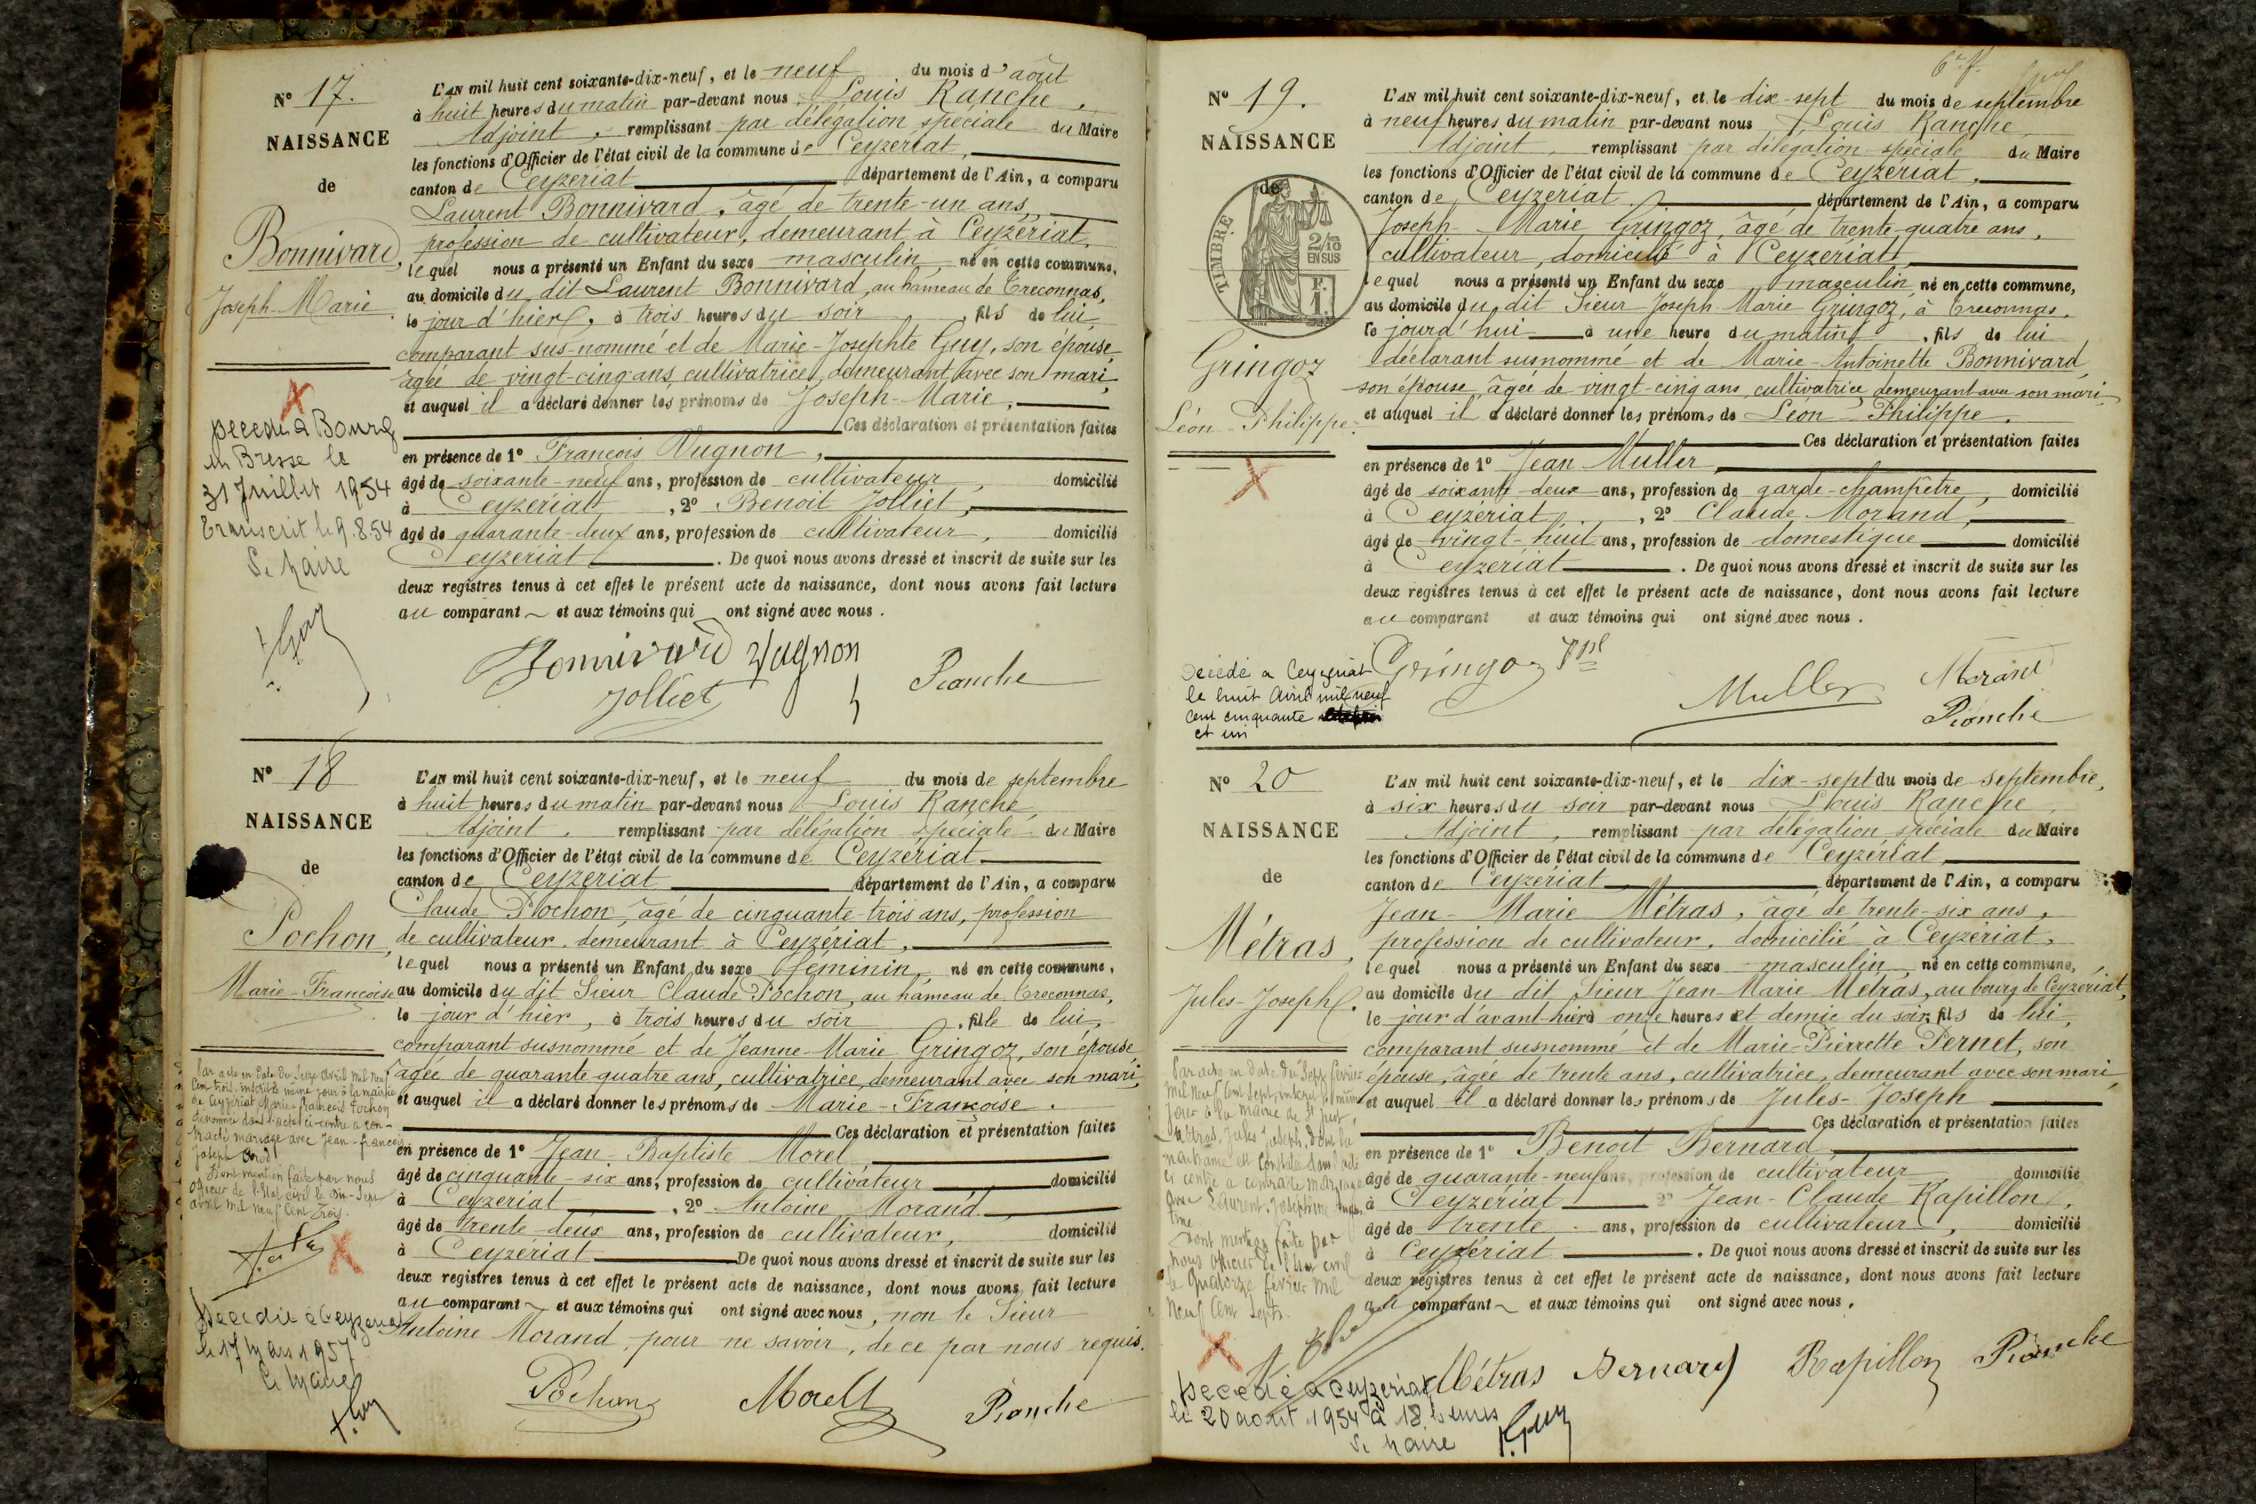 N° 17.
NAISSANCE
de
Bonnivard,
Joseph-Marie
L'AN mil huit cent soixante-dix-neuf, et le neuf du mois d'août
à huit heures du matin par-devant nous Louis Ranche,
Adjoint, remplissant par délégation spéciale du Maire
les fonctions d'Officier de l'état civil de la commune de Ceyzériat,
canton de Ceyzeriat département de l'Ain, a comparu
Laurent Bonnivard, âgé de trente-un ans,
profession de cultivateur, demeurant à Ceyzériat,
lequel nous a présenté un Enfant du sexe masculin, né en cette commune,
au domicile du dit Laurent Bonnivard, au hameau de Treconnas,
le jour d'hier, à trois heures du soir, fils de lui,
comparant sus-nommé et de Marie-Josephte Guy, son épouse,
âgée de vingt-cinq ans, cultivatrice, demeurant avec son mari,
et auquel il a déclaré donner les prénoms de Joseph-Marie,
Ces déclaration et présentation faites
en présence de 1° François Vugnon,
âgé de soixante-neuf ans, profession de cultivateur, domicilié
à Ceyzériat, 2° Benoit Jolliet,
âgé de quarante-deux ans, profession de cultivateur, domicilié
Ceyzeriat. De quoi nous avons dressé et inscrit de suite sur les
deux registres tenus à cet effet le présent acte de naissance, dont nous avons fait lecture
au comparant et aux témoins qui ont signé avec nous.
Decedé à Bourg
en Bresse le
31 Juillet 1954
Transcrit le 9.8.54
Le Maire
Bonnivard Vugnon
Jolliet
Ranche
N° 18
NAISSANCE
de
Pochon,
Marie-Françoise
L'AN mil huit cent soixante-dix-neuf, et le neuf du mois de septembre
à huit heures du matin par-devant nous Louis Ranche
Adjoint, remplissant par délégation spéciale du Maire
les fonctions d'Officier de l'état civil de la commune de Ceyzériat
canton de Ceyzeriat département de l'Ain, a comparu
Claude Pochon, âgé de cinquante-trois ans, profession
de cultivateur, demeurant à Ceyzériat,
lequel nous a présenté un Enfant du sexe féminin, né en cette commune,
au domicile du dit Sieur Claude Pochon, au hameau de Treconnas,
le jour d'hier, à trois heures du soir, fille de lui,
comparant susnommé et de Jeanne-Marie Gringoz, son épouse
âgée de quarante quatre ans, cultivatrice, demeurant avec son mari,
et auquel il a déclaré donner les prénoms de Marie-Françoise.
Ces déclaration et présentation faites
en présence de 1° Jean-Baptiste Morel
âgé de cinquante-six ans, profession de cultivateur domicilié
à Ceyzériat, 2° Antoine Morand
âgé de trente deux ans, profession de cultivateur, domicilié
à Ceyzériat De quoi nous avons dressé et inscrit de suite sur les
deux registres tenus à cet effet le présent acte de naissance, dont nous avons fait lecture
au comparant et aux témoins qui ont signé avec nous, non le Sieur
Antoine Morand, pour ne savoir, de ce par nous requis.
Par acte en date du seize avril mil neuf
cent trois inscrit le même jour à la mairie
de Ceyzériat Marie-Francoise Pochon
dénommée dans l'acte ci-contre a con-
tracté mariage avec Jean-François
Joseph
Dont mention faite par nous
officier de l'état civil le dix-sept
avril mil neuf cent trois.
Decedée à Ceyzeriat
le 17 Mars 1957
Le Maire
Pochon Morel Ranche
N° 19.
NAISSANCE
de
TIMBRE
2/10
EN SUS
F.
1.
Gringoz
Léon-Philippe.
L'AN mil huit cent soixante-dix-neuf, et le dix-sept du mois de septembre
à neuf heures du matin par-devant nous Louis Ranche
Adjoint, remplissant par délégation spéciale du Maire
les fonctions d'Officier de l'état civil de la commune de Ceyzeriat,
canton de Ceyzeriat département de l'Ain, a comparu
Joseph-Marie Gringoz, âgé de trente-quatre ans,
cultivateur, domicilié à Ceyzériat
lequel nous a présenté un Enfant du sexe masculin né en cette commune,
au domicile du dit Sieur Joseph Marie Gringoz, à Treconnas,
le jourd'hui à une heure du matin, fils de lui
déclarant susnommé et de Marie Antoinette Bonnivard
son épouse, âgée de vingt-cinq ans, cultivatrice demeurant avec son mari
et auquel il a déclaré donner les prénoms de Léon-Philippe.
Ces déclaration et présentation faites
en présence de 1° Jean Muller,
âgé de soixante-deux ans, profession de garde-champêtre, domicilié
à Ceyzériat, 2° Claude Morand,
âgé de vingt-huit ans, profession de domestique domicilié
à Ceyzériat. De quoi nous avons dressé et inscrit de suite sur les
deux registres tenus à cet effet le présent acte de naissance, dont nous avons fait lecture
au comparant et aux témoins qui ont signé avec nous.
Décédé a Ceyzeriat
le huit Avril mil neuf
cent cinquante
et un
Gringoz
Muller
Morand
Ranche
N° 20
NAISSANCE
de
Métras,
Jules-Joseph.
L'AN mil huit cent soixante-dix-neuf, et le dix-sept du mois de septembre,
à six heures du soir par-devant nous Louis Ranche
Adjoint, remplissant par délégation spéciale du Maire
les fonctions d'Officier de l'état civil de la commune de Ceyzériat,
canton de Ceyzeriat, département de l'Ain, a comparu
Jean-Marie Métras, âgé de trente-six ans,
profession de cultivateur, domicilié à Ceyzériat,
lequel nous a présenté un Enfant du sexe masculin, né en cette commune,
au domicile du dit Sieur Jean-Marie Métras, au bourg de Ceyzériat,
le jour d'avant-hier à onze heures et demie du soir, fils de lui,
comparant susnommé et de Marie-Pierrette Pernet, son
épouse, âgée de trente ans, cultivatrice, demeurant avec son mari,
et auquel il a déclaré donner les prénoms de Jules-Joseph
Ces déclaration et présentation faites
en présence de 1° Benoit Bernard,
âgé de quarante-neuf ans, profession de cultivateur domicilié
à Ceyzériat 2° Jean-Claude Rapillon,
âgé de trente ans, profession de cultivateur, domicilié
à Ceyzériat. De quoi nous avons dressé et inscrit de suite sur les
deux registres tenus à cet effet le présent acte de naissance, dont nous avons fait lecture
au comparant et aux témoins qui ont signé avec nous.
Par acte en date du sept février
mil neuf cent sept inscrit le même
jour à la mairie de St Just
Métras, Jules Joseph, dont la
naissance est constatée dans l'acte
ci contre a contracté mariage
avec Laurent, Joséphine
Dont mention faite par
nous officier de l'état civil
le quatorze février mil
neuf cent sept.
Decedé à Ceyzeriat
le 20 aout 1954 à 18 heures
Le Maire
Métras Bernard Rapillon Ranche